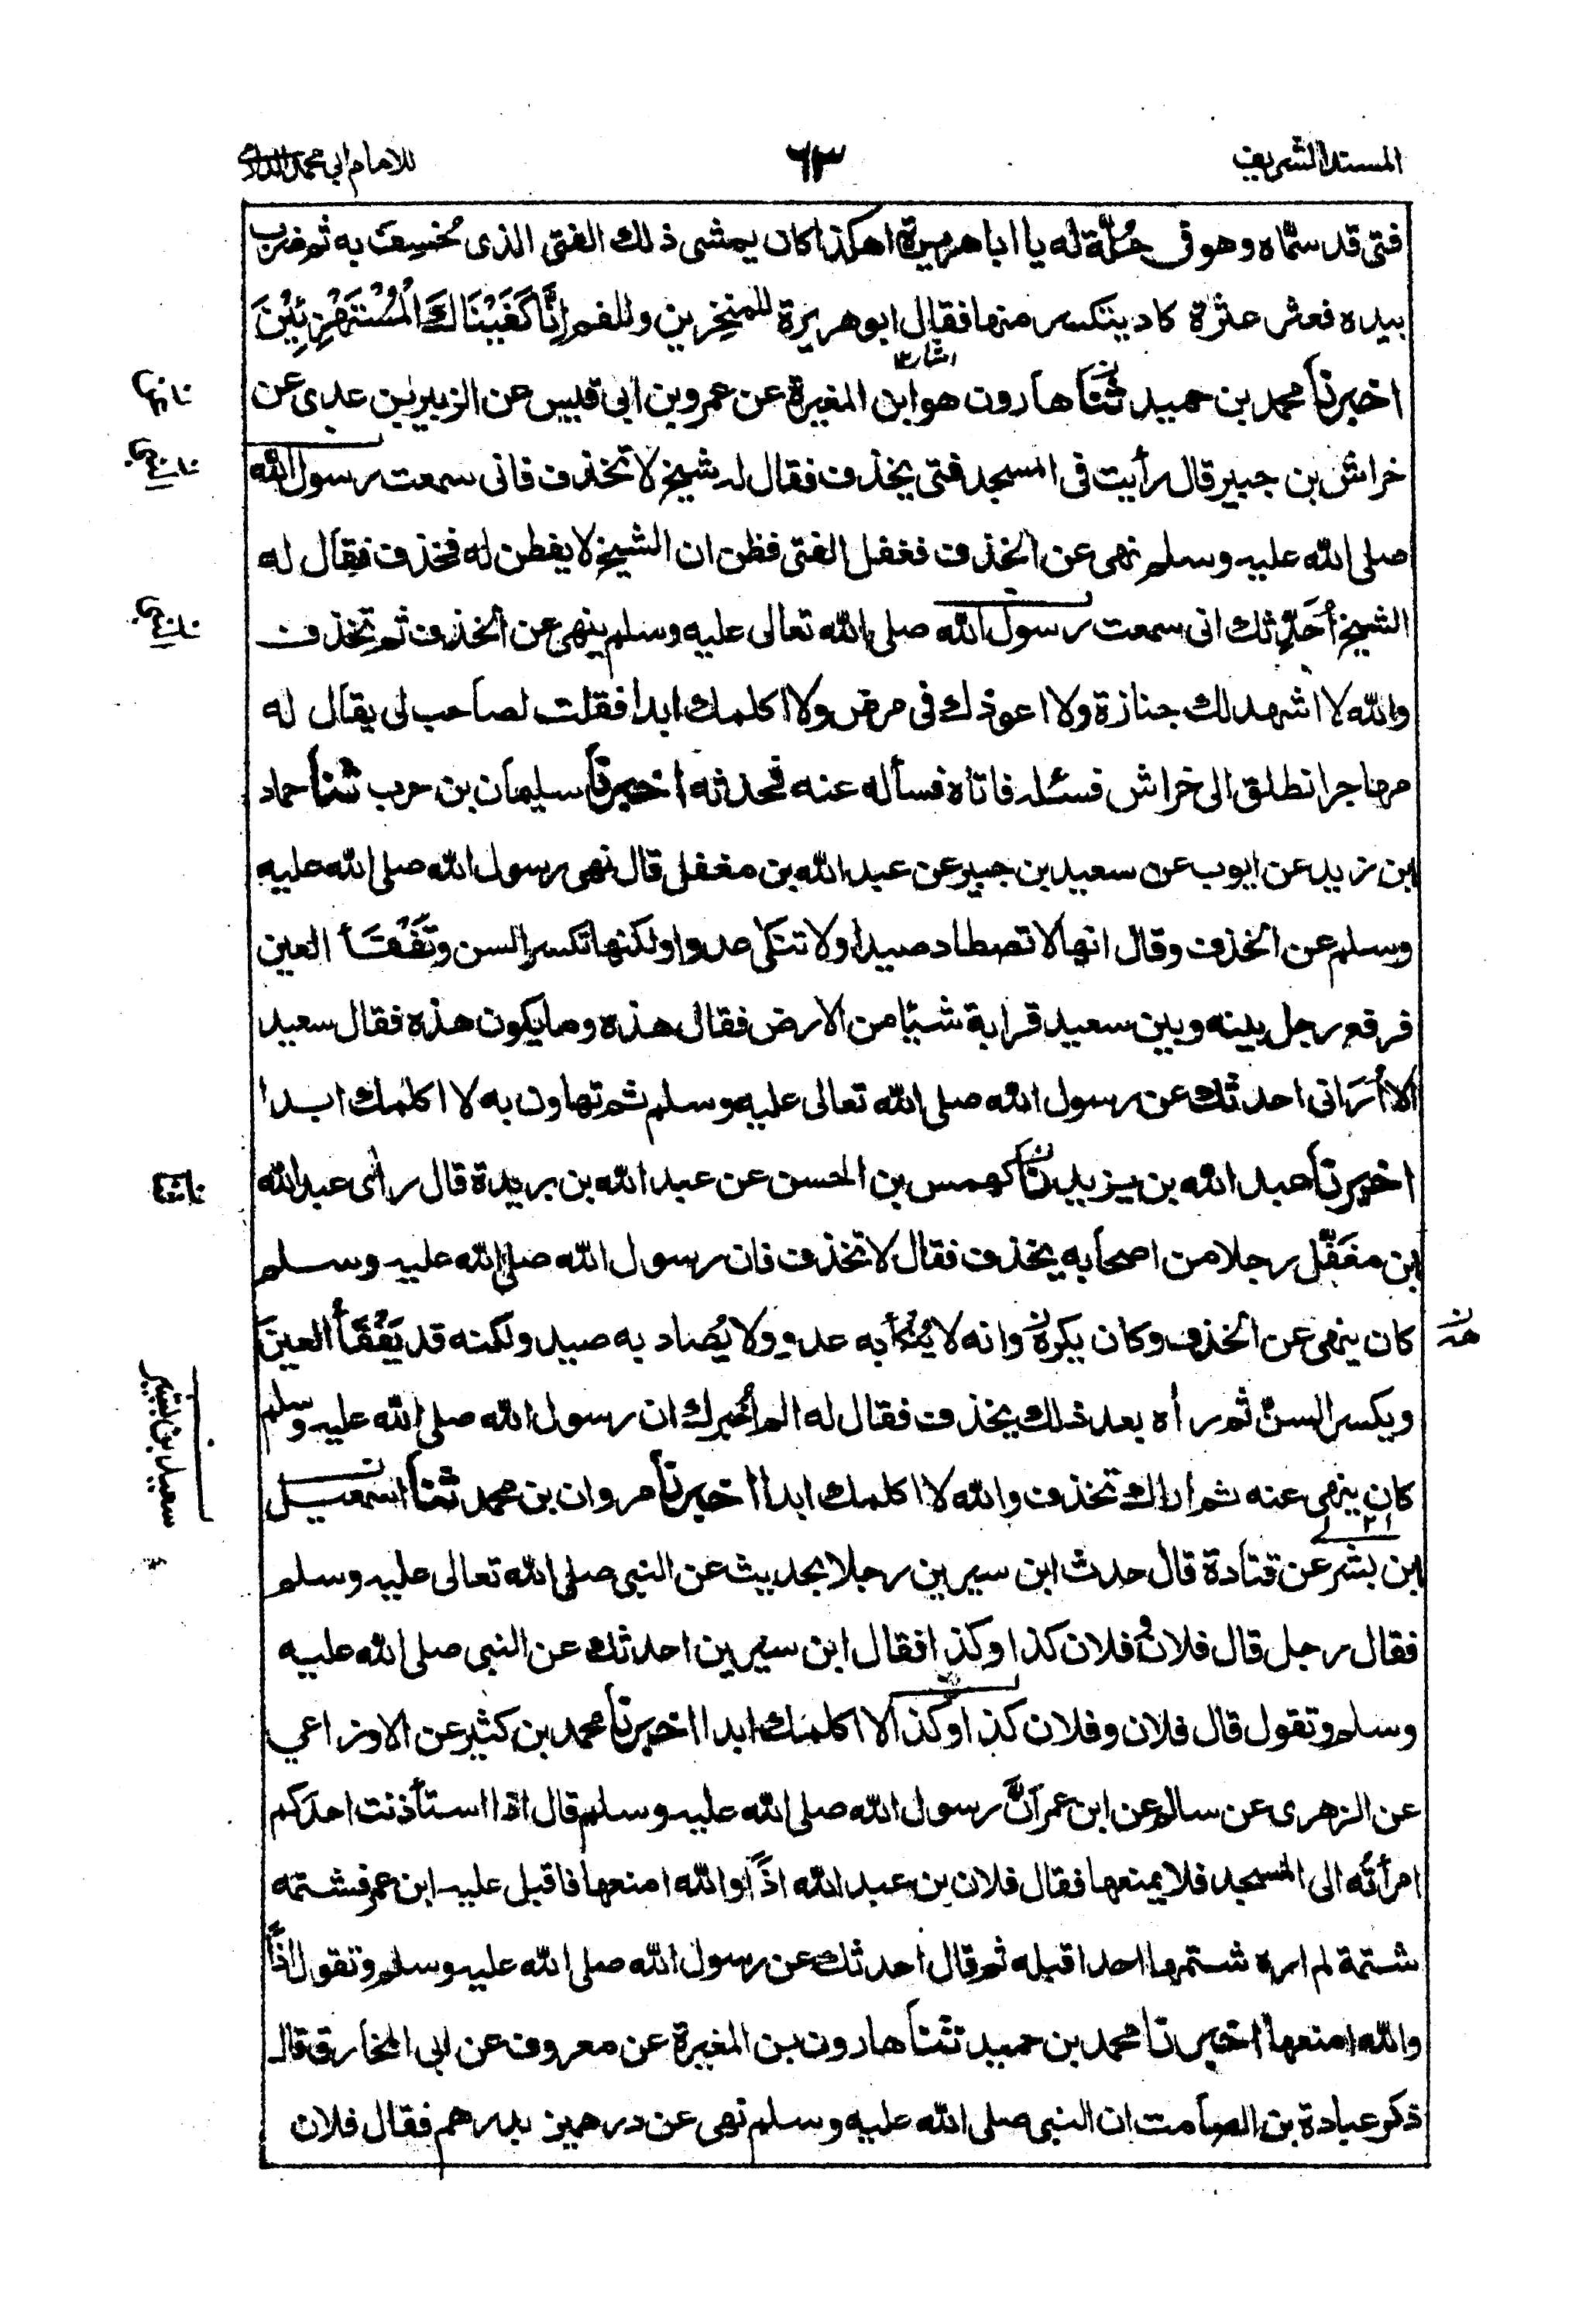 المسند الشريف ٦٣ للامام ابي محمد الدارمي
فتى قد سمّاه وهو في حُلّة له يا ابا هريرة اهكذا كان يمشى ذلك الفتى الذى خُسِفَ به ثم ضرب
بيده فعثر عثرة كاد يتكسر منها فقال ابو هريرة للمنخرين وللفم اِنَّا كَفَيْنَاكَ الْمُسْتَهْزِئِيْنَ
اخبرنا محمد بن حميد ثنا هارون هو ابن المغيرة عن عمرو بن ابى قيس عن الزبير بن عدى عن
خراش بن جبير قال رأيت فى المسجد فتى يخذف فقال له شيخ لا تخذف فانى سمعت رسول الله
صلى الله عليه وسلم نهى عن الخذف فغفل الفتى فظن ان الشيخ لا يفطن له فخذف فقال له
الشيخ أُحَدِّثك انى سمعت رسول الله صلى الله تعالى عليه وسلم ينهى عن الخذف ثم تخذف
والله لا اشهد لك جنازة ولا اعودك فى مرض ولا اكلمك ابدا فقلت لصاحب لى يقال له
مهاجر انطلق الى خراش فسئله فاتاه فسأله عنه فحدثه اخبرنا سليمان بن حرب ثنا حماد
ابن زيد عن ايوب عن سعيد بن جبير عن عبد الله بن مغفل قال نهى رسول الله صلى الله عليه
وسلم عن الخذف وقال انها لا تصطاد صيدا ولا تنكى عدوا ولكنها تكسر السن وتَفْقَأ العين
فرفع رجل بينه وبين سعيد قرابة شيئا من الارض فقال هذه وما يكون هذه فقال سعيد
الا أُرَانى احدثك عن رسول الله صلى الله تعالى عليه وسلم ثم تهاون به لا اكلمك ابدا
اخبرنا عبد الله بن يزيد ثنا كهمس بن الحسن عن عبد الله بن بريدة قال رأى عبد الله
بن مغَفّل رجلا من اصحابه يخذف فقال لا تخذف فان رسول الله صلى الله عليه وسلم
كان ينهى عن الخذف وكان يكره وانه لا يُنْكأ به عدو ولا يُصاد به صيد ولكنه قد يَفْقَأُ العينَ
ويكسر السنّ ثم رأه بعد ذلك يخذف فقال له الم أُخبرك ان رسول الله صلى الله عليه وسلم
كان ينهى عنه ثم اراك تخذف والله لا اكلمك ابدا اخبرنا مروان بن محمد ثنا اسمعيل
ابن بشر عن قتادة قال حدث ابن سيرين رجلا بحديث عن النبى صلى الله تعالى عليه وسلم
فقال رجل قال فلان و فلان كذا وكذا فقال ابن سيرين احدثك عن النبى صلى الله عليه
وسلم وتقول قال فلان وفلان كذا وكذا لا اكلمك ابدا اخبرنا محمد بن كثير عن الاوزاعي
عن الزهرى عن سالم عن ابن عمر أنَّ رسول الله صلى الله عليه وسلم قال اذا استأذنت احدَكم
امرأتُه الى المسجد فلا يمنعها فقال فلان بن عبد الله اذًا والله امنعها فاقبل عليه ابن عمر فشتمه
شتمة لم اره شتمها احدا قبله ثم قال احدثك عن رسول الله صلى الله عليه وسلم وتقول اذًا
والله امنعها اخبرنا محمد بن حميد ثنا هارون بن المغيرة عن معروف عن ابى المخارق قال
ذكر عبادة بن الصامت ان النبى صلى الله عليه وسلم نهى عن درهمين بدرهم فقال فلان
سعيد بن بشير